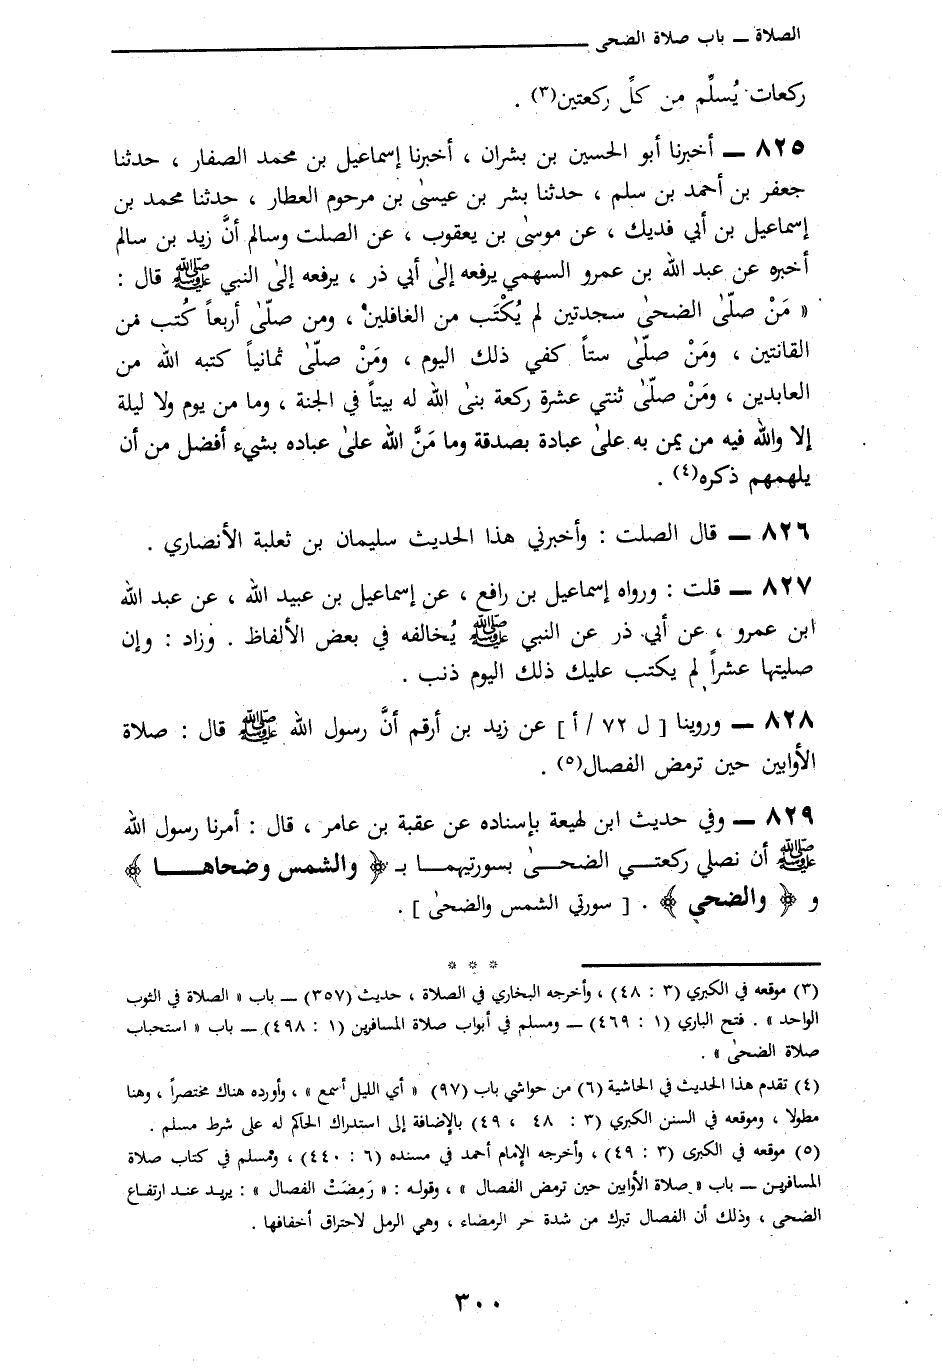 الصلاة ــ باب صلاة الضحى
ركعات يُسلِّم من كلِّ ركعتين(٣) .
٨٢٥ ــ أخبرنا أبو الحسين بن بشران ، أخبرنا إسماعيل بن محمد الصفار ، حدثنا
جعفر بن أحمد بن سلم ، حدثنا بشر بن عيسىٰ بن مرحوم العطار ، حدثنا محمد بن
إسماعيل بن أبي فديك ، عن موسىٰ بن يعقوب ، عن الصلت وسالم أنَّ زيد بن سالم
أخبره عن عبد الله بن عمرو السهمي يرفعه إلىٰ أبي ذر ، يرفعه إلىٰ النبي ﷺ قال :
« مَنْ صلّىٰ الضحىٰ سجدتين لم يُكْتَب من الغافلين ، ومن صلّىٰ أربعاً كُتب من
القانتين ، ومَنْ صلّىٰ ستاً كفي ذلك اليوم ، ومَنْ صلّىٰ ثمانياً كتبه الله من
العابدين ، ومَنْ صلّىٰ ثنتي عشرة ركعة بنىٰ الله له بيتاً في الجنة ، وما من يوم ولا ليلة
إلا والله فيه من يمن به علىٰ عبادة بصدقة وما مَنَّ الله علىٰ عباده بشيء أفضل من أن
يلهمهم ذكره(٤) .
٨٢٦ ــ قال الصلت : وأخبرني هذا الحديث سليمان بن ثعلبة الأنصاري .
٨٢٧ ــ قلت : ورواه إسماعيل بن رافع ، عن إسماعيل بن عبيد الله ، عن عبد الله
ابن عمرو ، عن أبي ذر عن النبي ﷺ يُخالفه في بعض الألفاظ . وزاد : وإن
صليتها عشراً لم يكتب عليك ذلك اليوم ذنب .
٨٢٨ ــ وروينا [ ل ٧٢ / أ ] عن زيد بن أرقم أنَّ رسول الله ﷺ قال : صلاة
الأوابين حين ترمض الفصال(٥) .
٨٢٩ ــ وفي حديث ابن لهيعة بإسناده عن عقبة بن عامر ، قال : أمرنا رسول الله
ﷺ أن نصلي ركعتـي الضحـىٰ بسورتيهمـا بـ ﴿ والشمس وضحاهـا ﴾
و ﴿ والضحي ﴾ . [ سورتي الشمس والضحىٰ ] .
* * *
(٣) موقعه في الكبري (٣ : ٤٨) ، وأخرجه البخاري في الصلاة ، حديث (٣٥٧) ــ باب « الصلاة في الثوب
الواحد » . فتح الباري (١ : ٤٦٩) ــ ومسلم في أبواب صلاة المسافرين (١ : ٤٩٨) ــ باب « استحباب
صلاة الضحىٰ » .
(٤) تقدم هذا الحديث في الحاشية (٦) من حواشي باب (٩٧) « أي الليل أسمع » ، وأورده هناك مختصراً ، وهنا
مطولا ، وموقعه في السنن الكبري (٣ : ٤٨ ، ٤٩) بالإضافة إلى استدراك الحاكم له على شرط مسلم .
(٥) موقعه في الكبرى (٣ : ٤٩) ، وأخرجه الإمام أحمد في مسنده (٦ : ٤٤٠) ، ومسلم في كتاب صلاة
المسافرين ــ باب « صلاة الأوابين حين ترمض الفصال » ، وقوله : « رَمِضَتْ الفصال » : يريد عند ارتفاع
الضحى ، وذلك أن الفصال تبرك من شدة حر الرمضاء ، وهي الرمل لاحتراق أخفافها .
٣٠٠